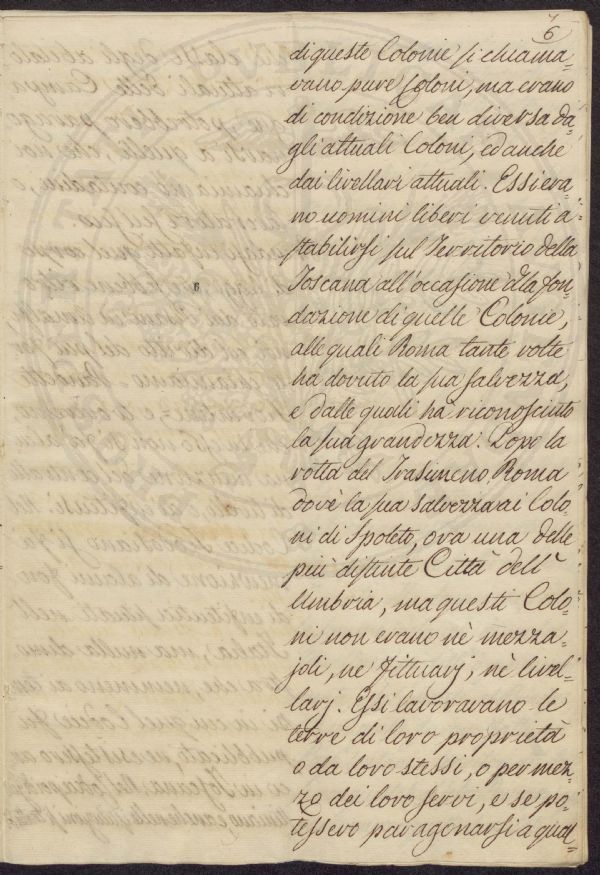 6
di queste Colonie si chiama=
vano pure Coloni, ma erano
di condizione ben diversa da=
gli attuali Coloni, ed anche
dai livellari attuali. Essi era=
no uomini liberi venuti a
stabilirsi sul Territorio della
Toscana all'occasione dlla fon=
dazione di quelle Colonie,
alle quali Roma tante volte
ha dovuto la sua salvezza,
e dalle quali ha riconosciuto
la sua grandezza. Dopo la
rotta del Trasimeno, Roma
dovè la sua salvezza ai Colo=
ni di Spoleto, ora una delle
più distinte Città dell'
Umbria, ma questi Colo=
ni non erano nè mezza=
joli, ne fittuarj, nè livel=
larj. Essi lavoravano le
terre di loro proprietà
o da loro stessi, o per mez=
zo dei loro servi, e se po=
tessero paragonarsi a qual=